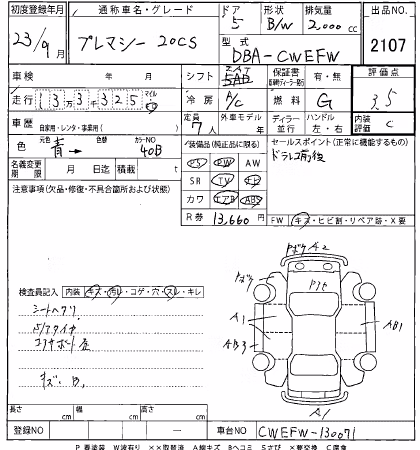 初度登録年月 通称車名・グレード ドア 形状 排気量 出品NO.
23/9月 プレマシー 20CS 5 B/W 2,000cc 2107
型式
DBA-CWEFW
車検 年 月 シフト 5AD 保証書 有・無 評価点
走行 133325 マイル 冷房 A/C 燃料 G 3.5
車歴 自家用・レンタ・事業用( ) 定員 7人 外車モデル 年 ディーラー 並行 ハンドル 左・右 内装 C
色 元色 青→ 色替 カラーNO 40B
装備品(純正に限る) セールスポイント(正常に機能するもの)
PS PW AW ドラレコ前後
名義変更期限 月 日迄 積載 t
SR TV ナビ
注意事項(欠品・修復・不具合箇所および状態)
カワ エアB ABS
R券 13,660円 FW キズ・ヒビ割・リペア跡・X要
検査員記入 内装 キズ・汚レ・コゲ・穴・スレ・キレ
シートヘタリ
キズ・B,
A2
A1
AB3
AB1
A1
長さ cm 幅 cm 高さ cm
登録NO 車台NO CWEFW-130071
P 要塗装 W波有り ××取替済 A線キズ Bヘコミ Sさび ×要交換 C腐食